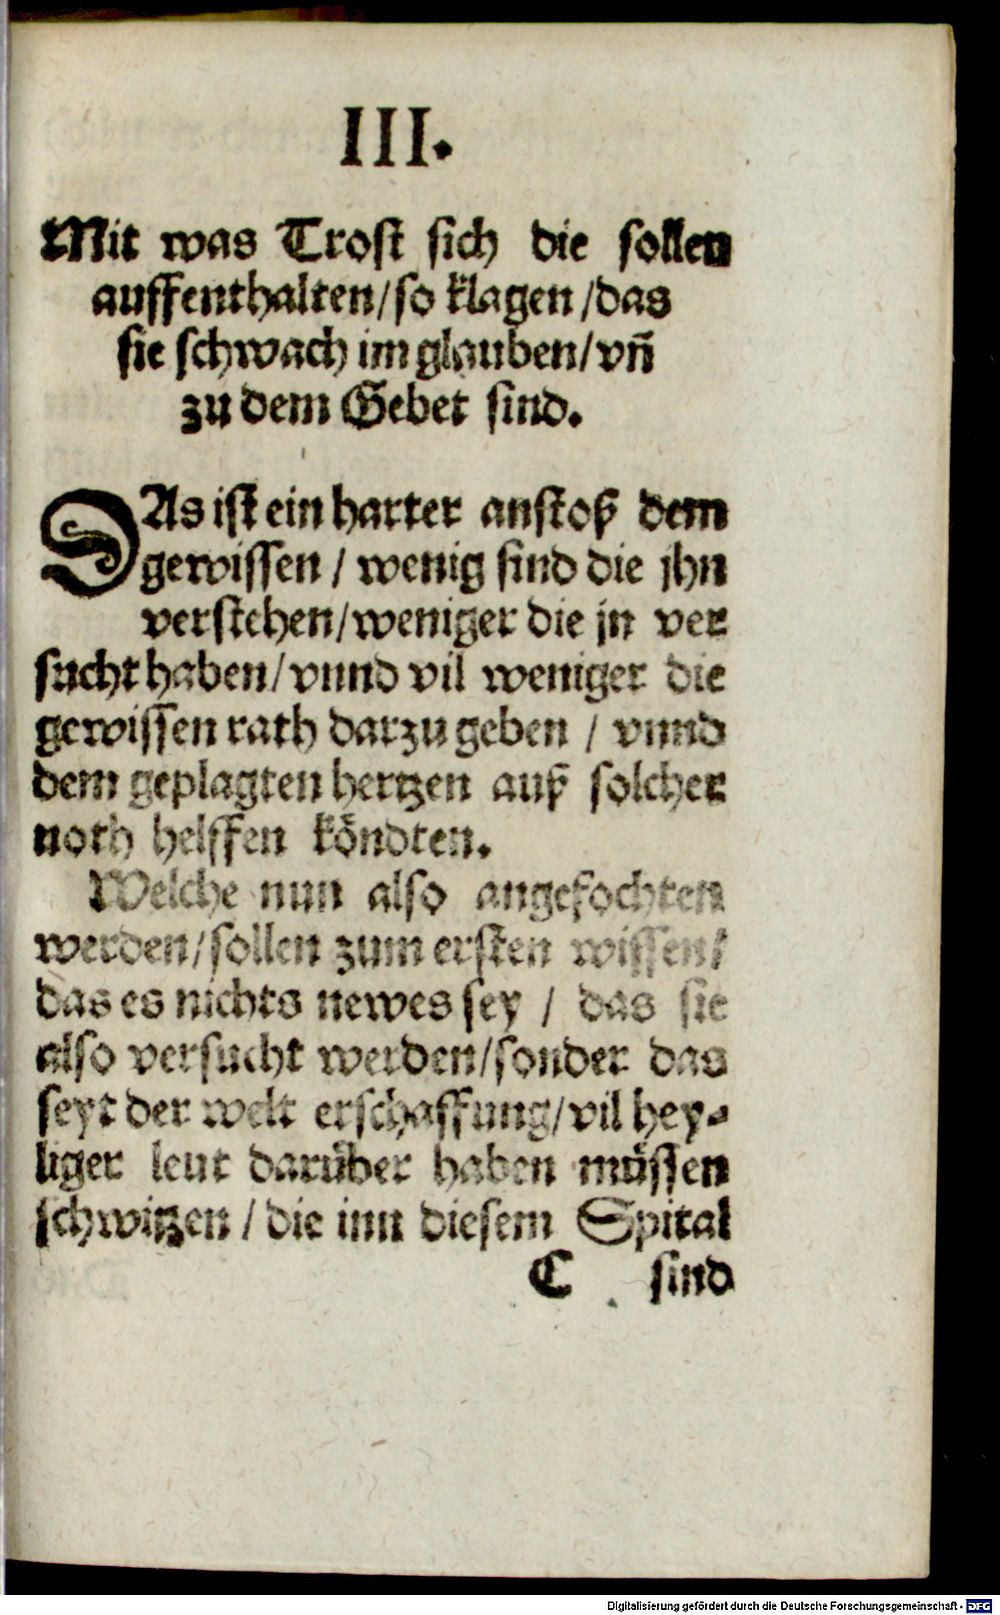 III.
Mit was Trost sich die sollen
auffenthalten/so klagen/das
sie schwach im glauben/vñ
zu dem Gebet sind.
DAs ist ein harter anstoß dem
gewissen / wenig sind die jhn
verstehen/weniger die jn ver
sucht haben/vnnd vil weniger die
gewissen rath darzu geben / vnnd
dem geplagten hertzen auß solcher
noth helffen köndten.
Welche nun also angefochten
werden/sollen zum ersten wissen/
das es nichts newes sey / das sie
also versucht werden/sonder das
seyt der welt erschaffung/vil hey-
liger leut darüber haben müssen
schwitzen / die inn diesem Spital
C sind
Digitalisierung gefördert durch die Deutsche Forschungsgemeinschaft - DFG